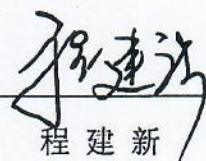 程建新
程建新